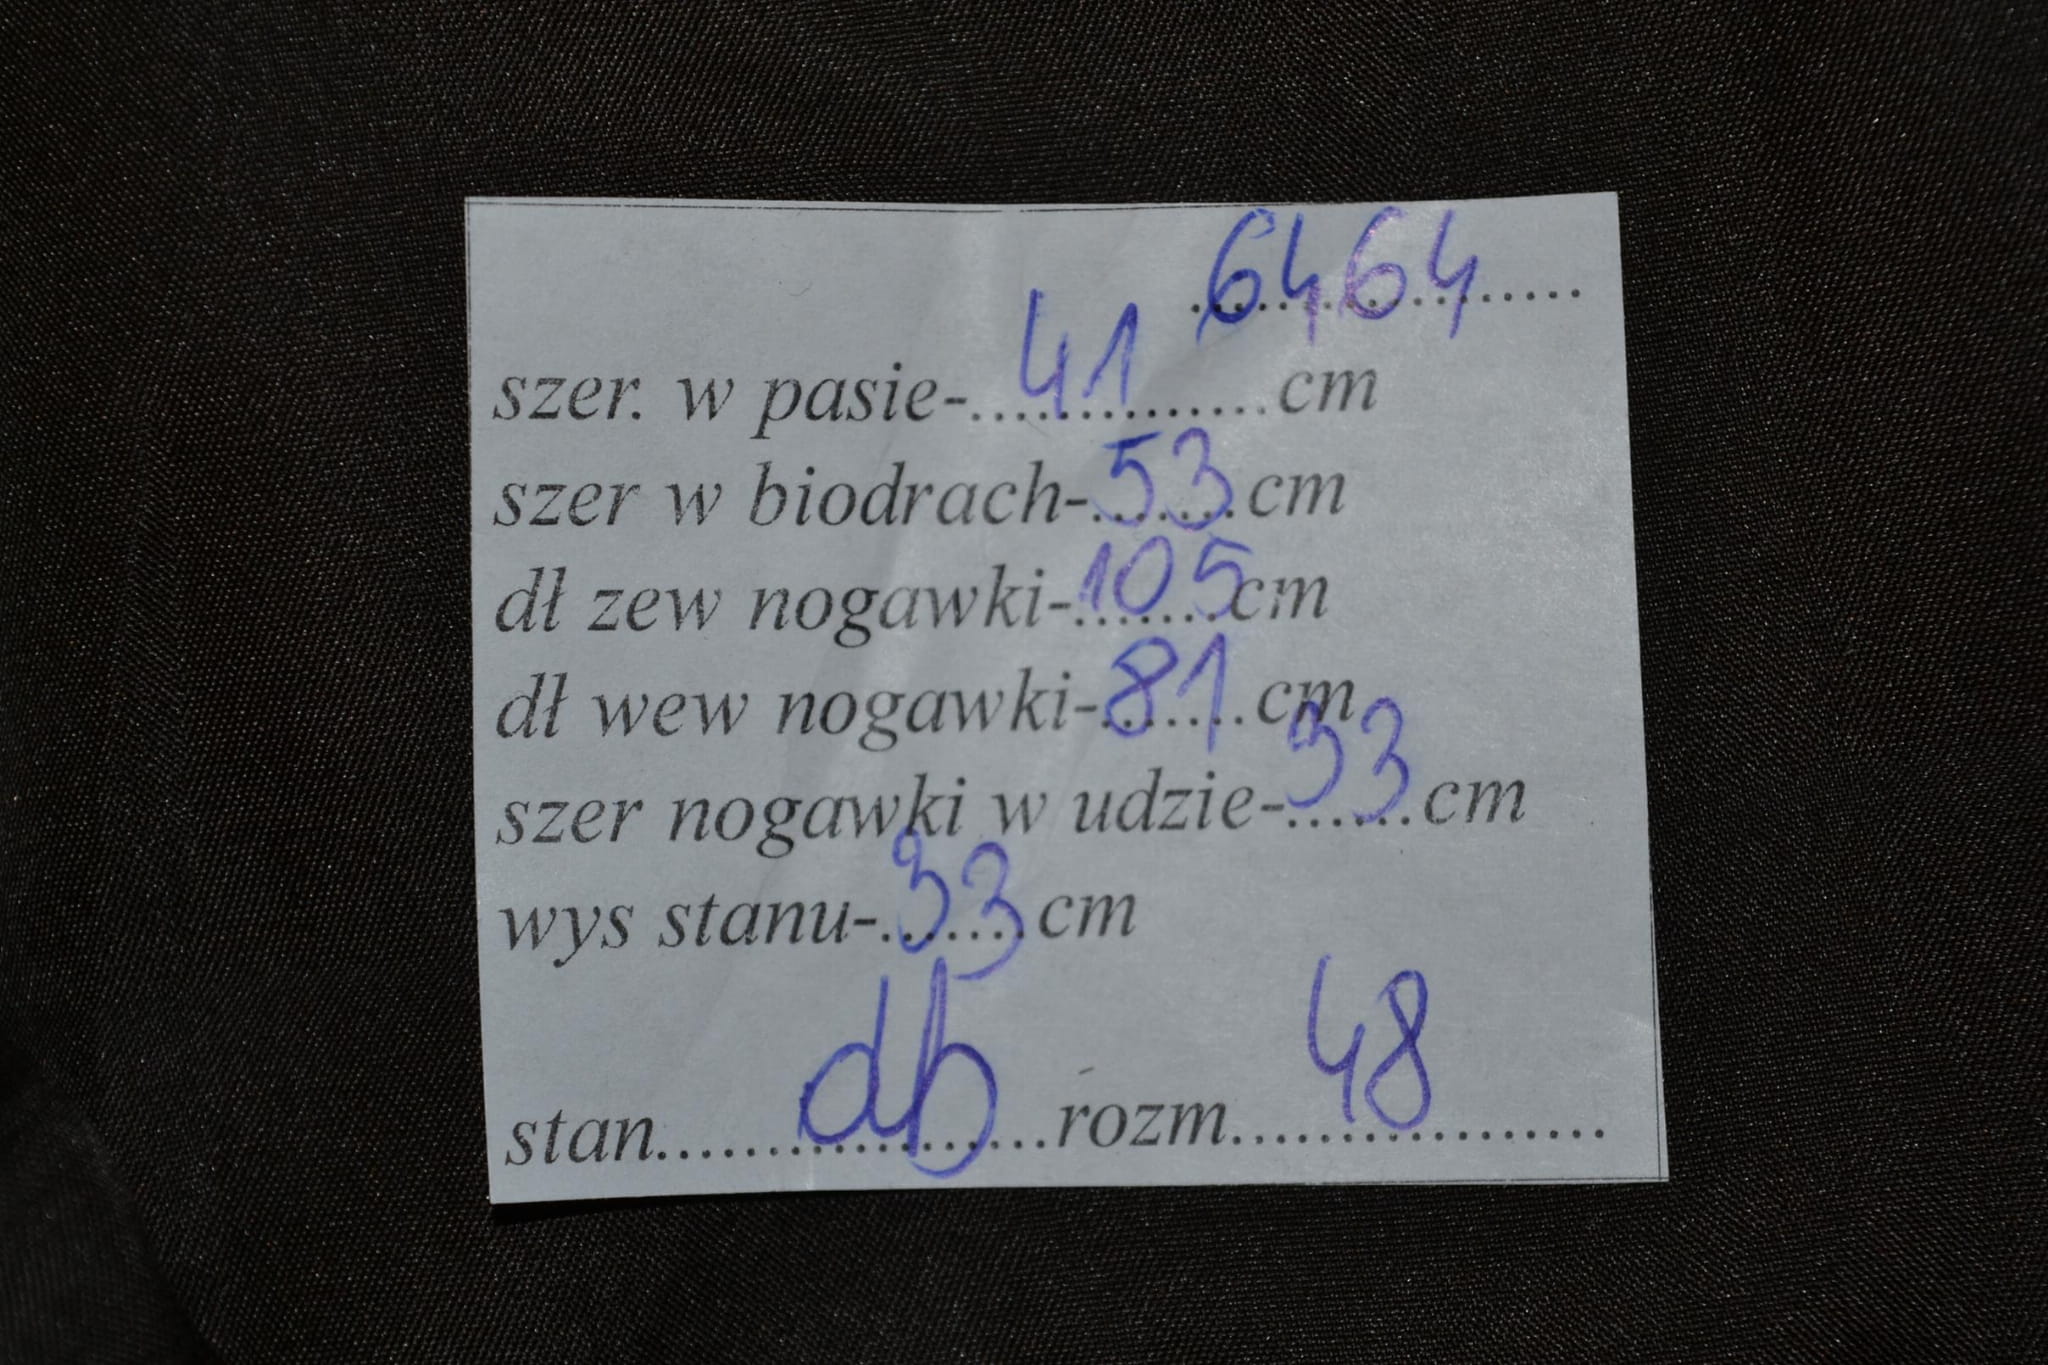 6464
szer. w pasie-41cm
szer w biodrach-53cm
dł zew nogawki-105cm
dł wew nogawki-81cm
szer nogawki w udzie-33cm
wys stanu-33cm
stan db rozm 48